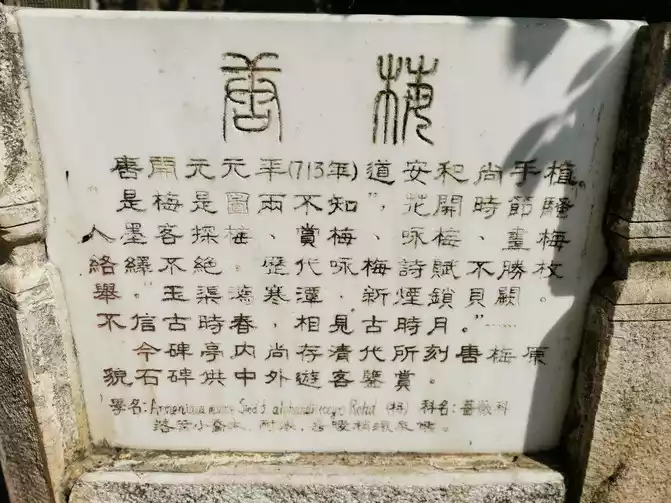 唐 梅
唐開元元年(713年)道安和尚手植。
"是梅是圖兩不知",花開時節騷
人墨客探梅、賞梅、咏梅、畫梅
絡繹不絕。歷代咏梅詩賦不勝枚
舉。"玉渠瀉寒潭,新煙鎖貝闕。
不信古時春,相見古時月。"……
今碑亭内尚存清代所刻唐梅原
貌石碑供中外遊客鑒賞。
學名:Armeniaca mume Sied f. Rehd 科名:薔薇科
落葉小喬木,耐